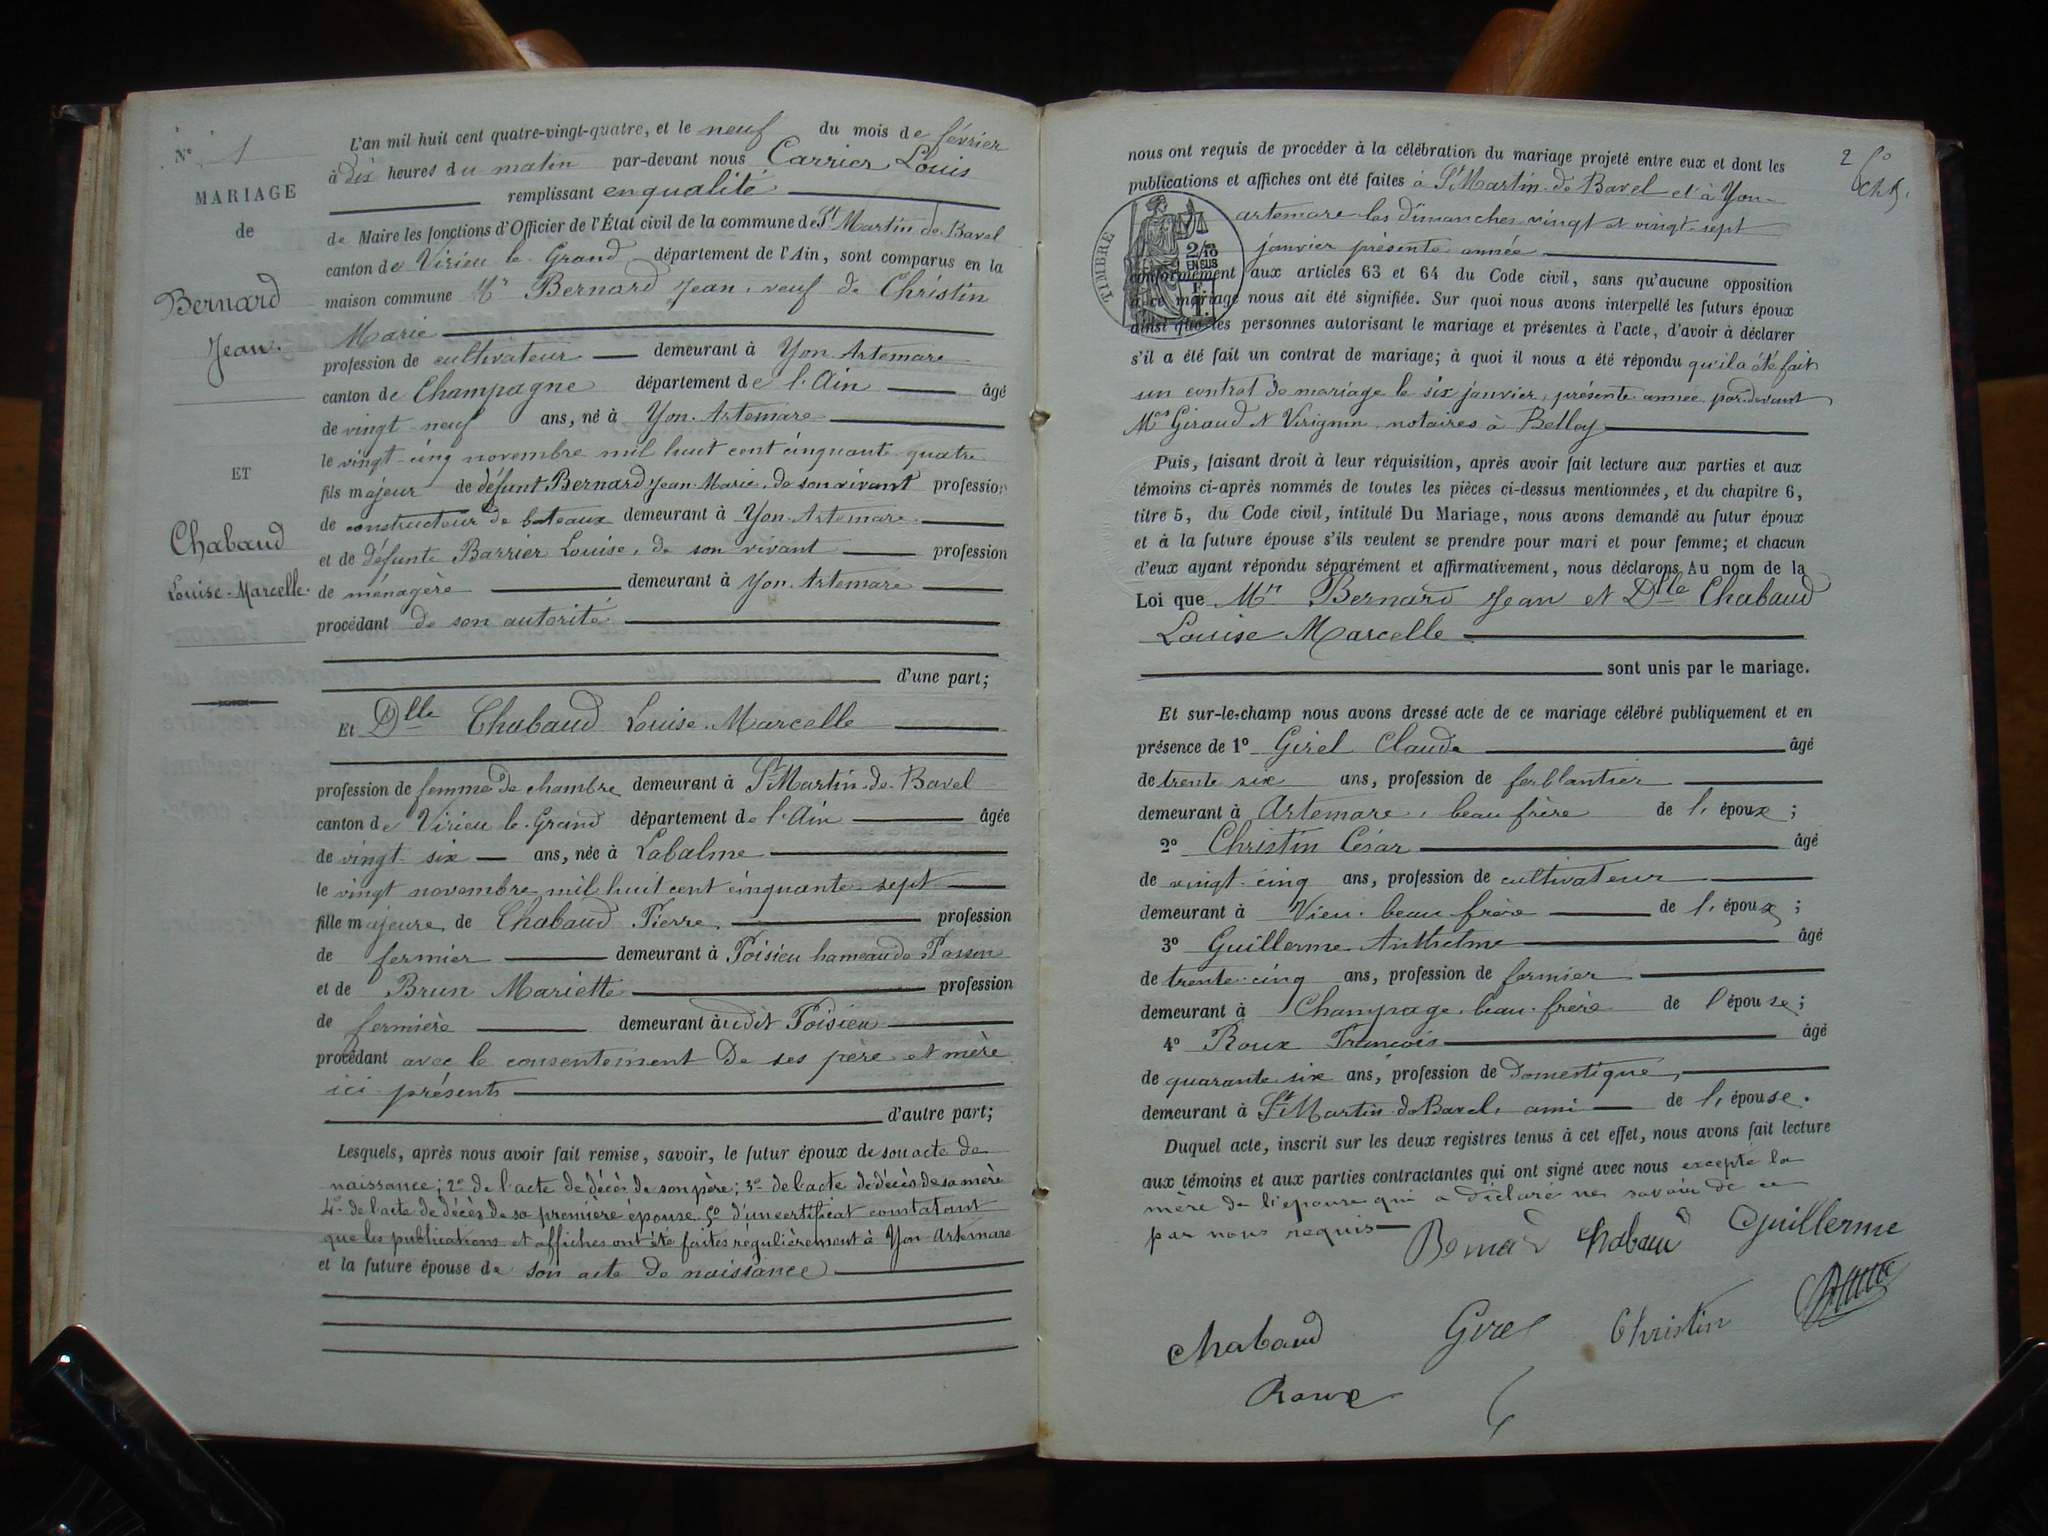 N° 1
MARIAGE
de
Bernard
Jean.
ET
Chabaud
Louise-Marcelle.
L'an mil huit cent quatre-vingt-quatre, et le neuf du mois de février
à dix heures du matin par-devant nous Carrier Louis
remplissant en qualité
de Maire les fonctions d'Officier de l'État civil de la commune de St Martin de Bavel
canton de Virieu le Grand département de l'Ain, sont comparus en la
maison commune Mr Bernard Jean, veuf de Christin
Marie
profession de cultivateur demeurant à Yon Artemare
canton de Champagne département de l'Ain âgé
de vingt neuf ans, né à Yon Artemare
le vingt-cinq novembre mil huit cent cinquante quatre
fils majeur de défunt Bernard Jean-Marie, de son vivant profession
de constructeur de bateaux demeurant à Yon Artemare
et de défunte Barrier Louise, de son vivant profession
de ménagère demeurant à Yon Artemare
procédant de son autorité
d'une part;
Et Dlle Chabaud Louise-Marcelle
profession de femme de chambre demeurant à St Martin-de-Bavel
canton de Virieu le Grand département de l'Ain âgée
de vingt six ans, née à Labalme
le vingt novembre mil huit cent cinquante sept
fille majeure de Chabaud Pierre profession
de fermier demeurant à Poisieu hameau de Passin
et de Brun Mariette profession
de fermière demeurant àudit Poisieu
procédant avec le consentement de ses père et mère
ici présents
d'autre part;
Lesquels, après nous avoir fait remise, savoir, le futur époux de son acte de
naissance; 2° de l'acte de décès de son père; 3° de l'acte de décès de sa mère
4° de l'acte de décès de sa première épouse 5° d'un certificat constatant
que les publications et affiches ont été faites regulièrement à Yon Artemare
et la future épouse de son acte de naissance
2
nous ont requis de procéder à la célébration du mariage projeté entre eux et dont les
publications et affiches ont été faites à St Martin-de-Bavel et à Yon-
artemare les dimanches vingt et vingt-sept
janvier présente année
TIMBRE
2/10
EN SUS
F.
1.
conformément aux articles 63 et 64 du Code civil, sans qu'aucune opposition
à ce mariage nous ait été signifiée. Sur quoi nous avons interpellé les futurs époux
ainsi que les personnes autorisant le mariage et présentes à l'acte, d'avoir à déclarer
s'il a été fait un contrat de mariage; à quoi il nous a été répondu qu'il a été fait
un contrat de mariage le six janvier, présente année pardevant
Mes Giraud et Virignin notaires à Belley
Puis, faisant droit à leur réquisition, après avoir fait lecture aux parties et aux
témoins ci-après nommés de toutes les pièces ci-dessus mentionnées, et du chapitre 6,
titre 5, du Code civil, intitulé Du Mariage, nous avons demandé au futur époux
et à la future épouse s'ils veulent se prendre pour mari et pour femme; et chacun
d'eux ayant répondu séparément et affirmativement, nous déclarons Au nom de la
Loi que Mr Bernard Jean et Dlle Chabaud
Louise Marcelle
sont unis par le mariage.
Et sur-le-champ nous avons dressé acte de ce mariage célébré publiquement et en
présence de 1° Girel Claude âgé
de trente six ans, profession de ferblantier
demeurant à Artemare, beau frère de l'époux;
2° Christin César âgé
de vingt-cinq ans, profession de cultivateur
demeurant à Vieu, beau frère de l'époux;
3° Guillerme Anthelme âgé
de trente-cinq ans, profession de fermier
demeurant à Champage, beau-frère de l'épouse;
4° Roux François âgé
de quarante six ans, profession de domestique,
demeurant à St Martin de Bavel, ami de l'épouse.
Duquel acte, inscrit sur les deux registres tenus à cet effet, nous avons fait lecture
aux témoins et aux parties contractantes qui ont signé avec nous excepté la
mère de l'épouse qui a déclaré ne savoir de ce
par nous requis
Bernard Chabaud Guillerme
Chabaud Girel Christin
Roux